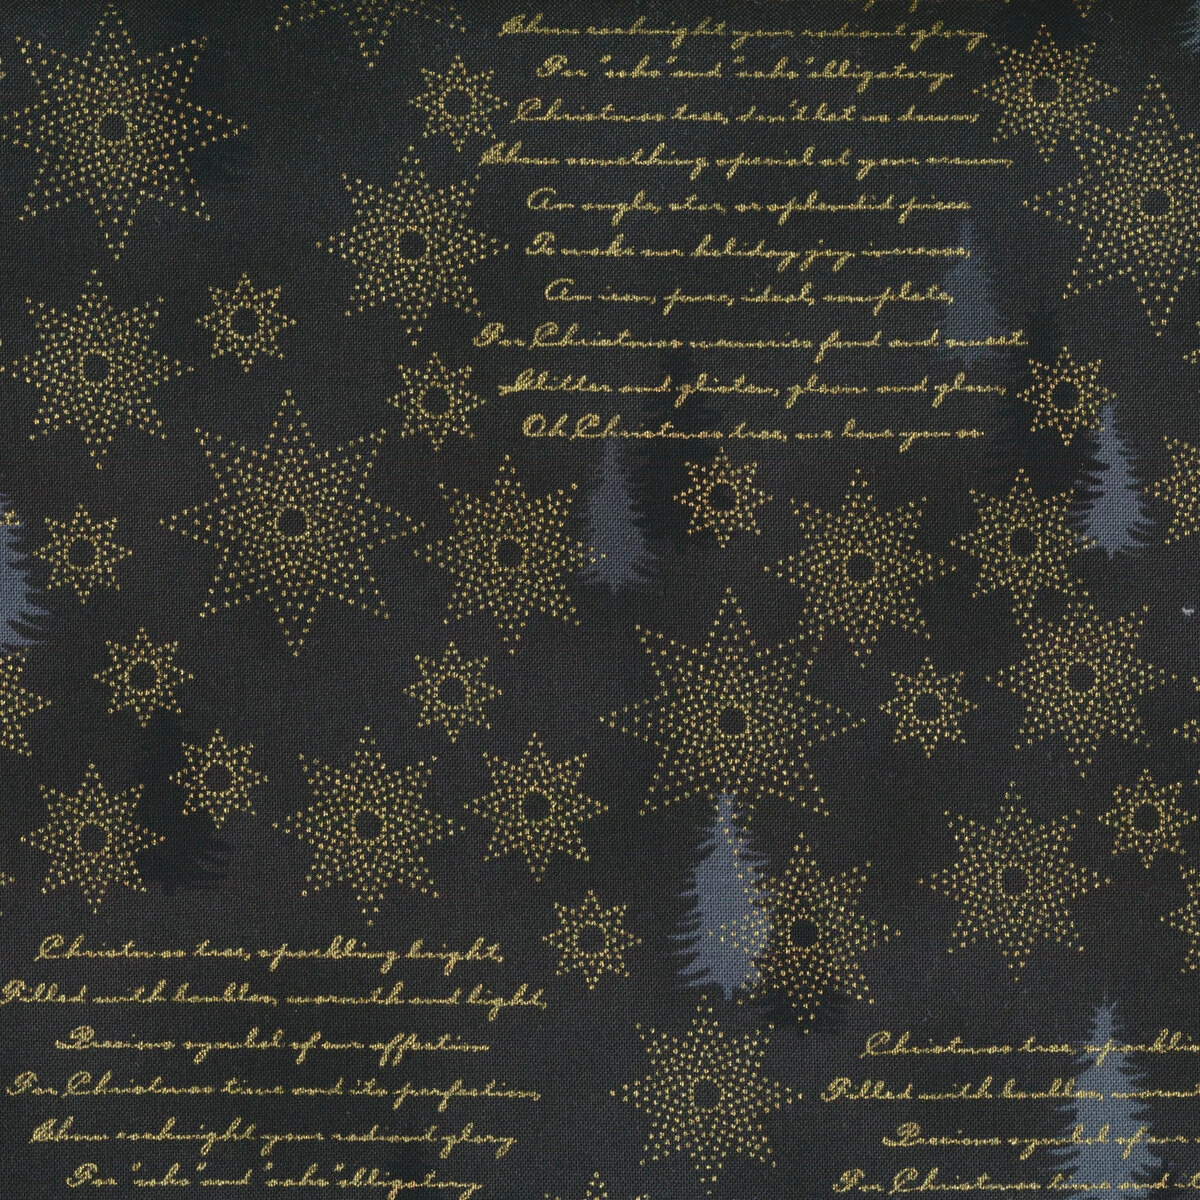 Show each night your radiant glory
For "oohs" and "aahs" obligatory
Christmas tree, don't let us down,
Show something special at your crown,
An angel, star, or splendid piece
To make our holiday joy increase,
An icon, pure, ideal, complete,
For Christmas memories fond and sweet
Glitter and glisten, gleam and glow,
Oh, Christmas tree, we love you so
Christmas tree, sparkling bright,
Filled with baubles, warmth and light,
Precious symbol of our affection
For Christmas time and its perfection,
Show each night your radiant glory
For "oohs" and "aahs" obligatory
Christmas tree, sparklin
Filled with baubles, warm
Precious symbol of our
For Christmas time and it